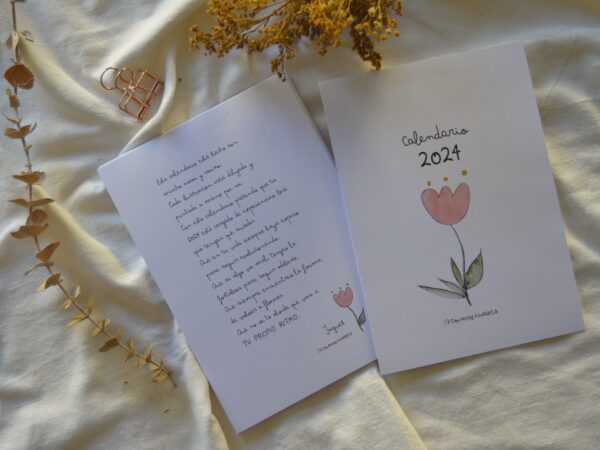 Este calendario está hecho con
mucho amor y cariño.
Cada ilustración está dibujada y
pintada a mano por mí.
Con este calendario pretendo que tu
2024 esté cargado de experiencias, las
que tengan que suceder.
Que en tu vida siempre haya espacio
para seguir evolucionando.
Que si algo va mal, tengas la
fortaleza para seguir adelante.
Que siempre encuentres la forma
de volver a florecer.
Que no se te olvide que vas a
TU PROPIO RITMO.
Calendario
2024